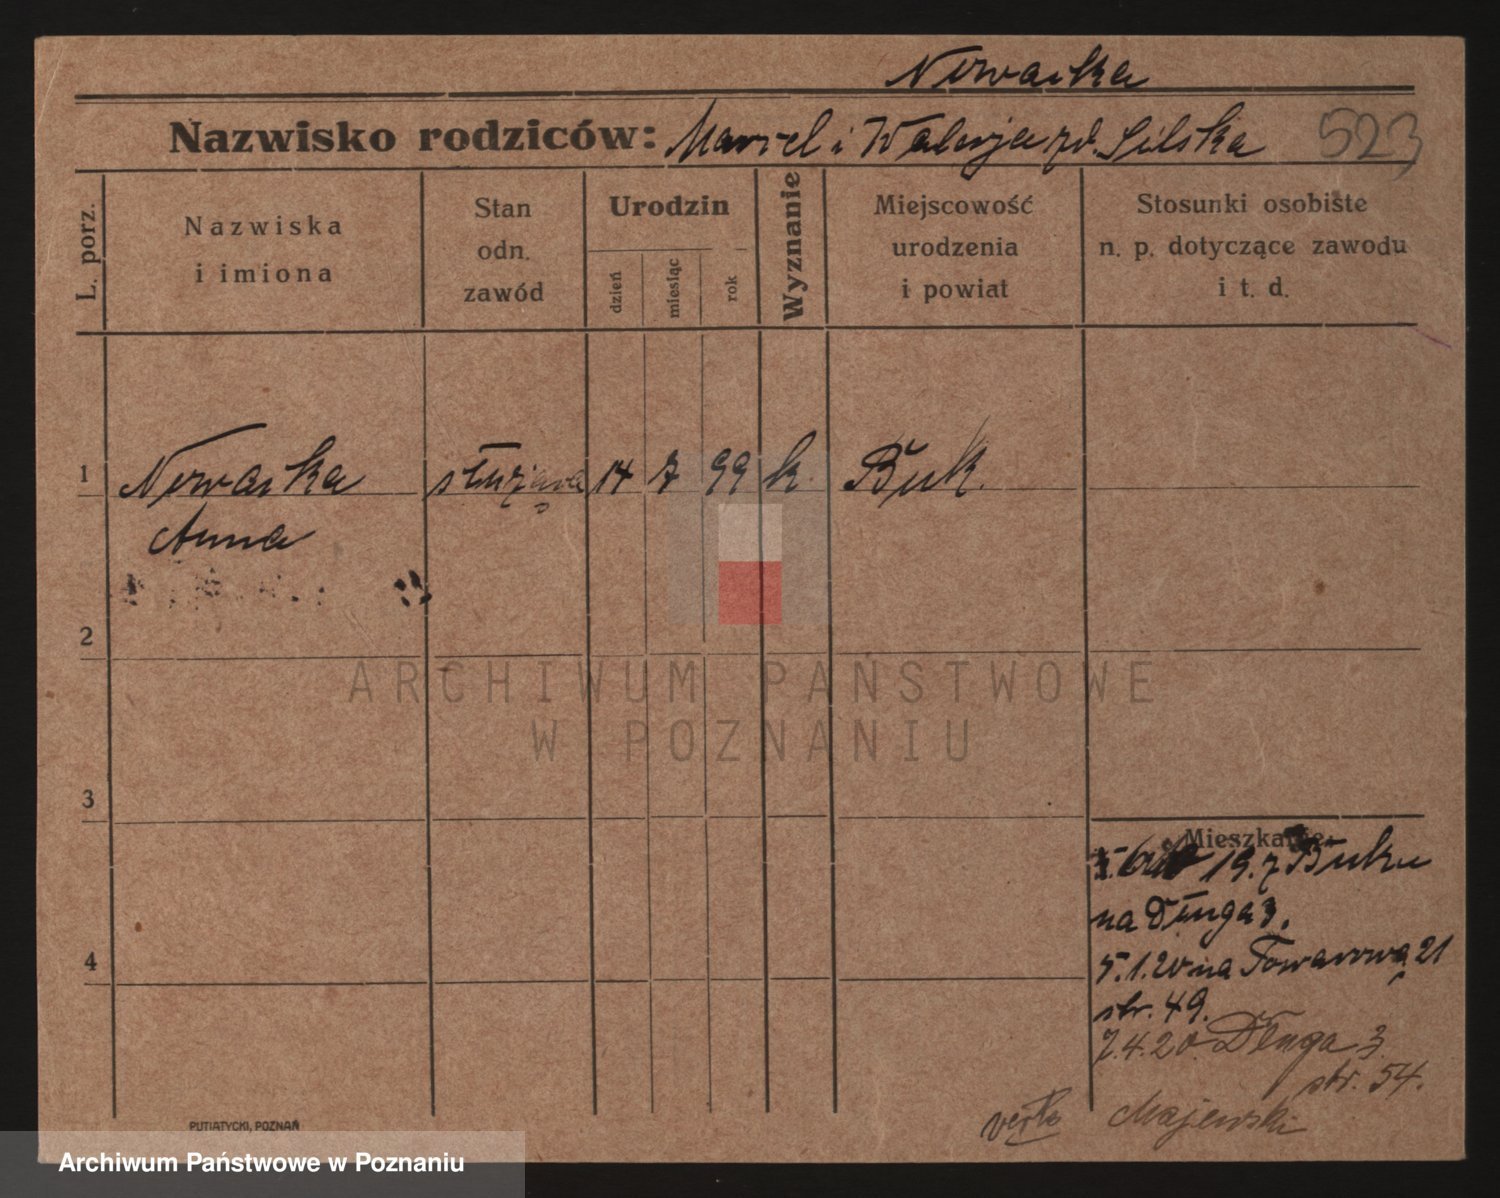 Nowacka
Nazwisko rodziców: Marcel i Waleryja zd. Silska 523
L. porz.
Nazwiska
i imiona
Stan
odn.
zawód
Urodzin
dzień
miesiąc
rok
Wyznanie
Miejscowość
urodzenia
i powiat
Stosunki osobiste
n. p. dotyczące zawodu
i t. d.
1 Nowacka służąca 14 7 99 k. Buk.
Anna
2
3
4
Mieszkanie:
19. z Buku
na Długa 3.
5.1.20 na Towarową 21
str. 49.
7.4.20. Długa 3
str. 54.
Majewski
PUTIATYCKI, POZNAŃ
ARCHIWUM PAŃSTWOWE
W POZNANIU
Archiwum Państwowe w Poznaniu